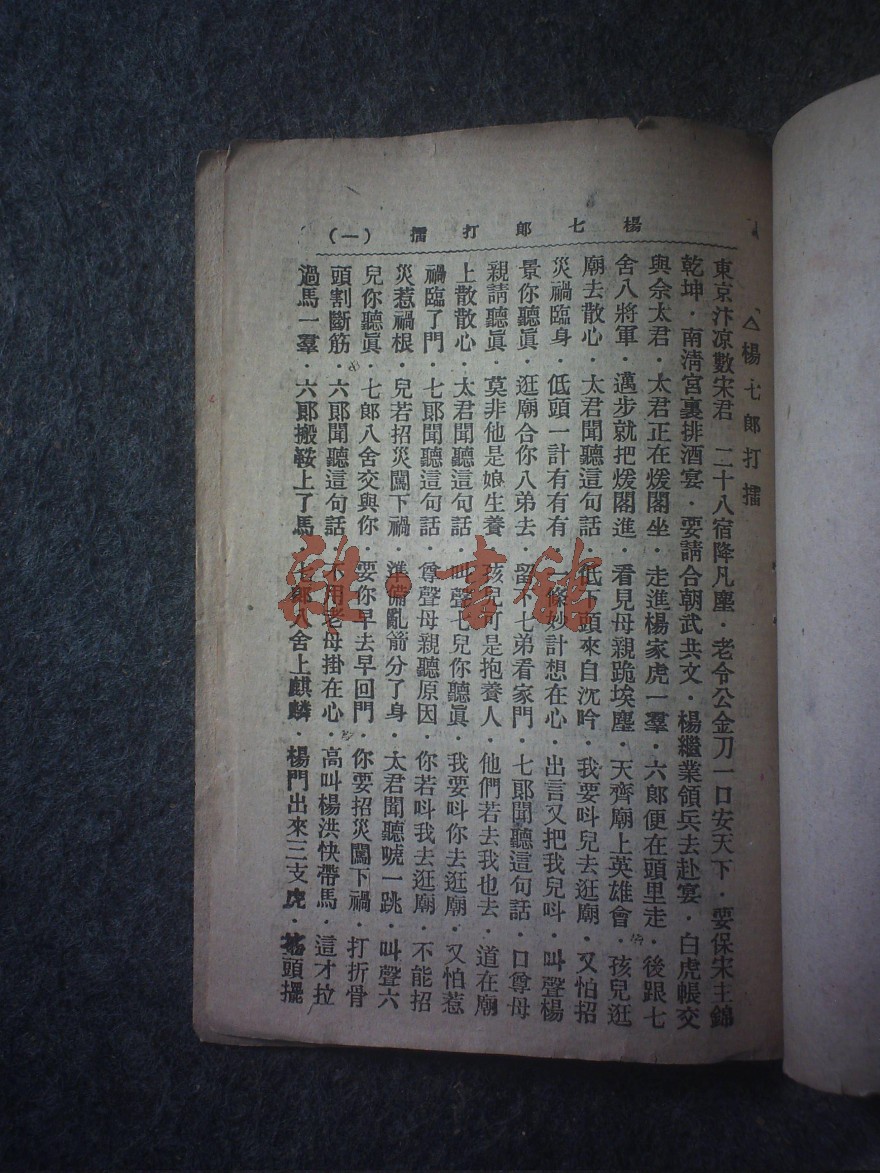 楊七郎打擂 (一)
△楊七郎打擂
東京汴凉數宋君　二十八宿降凡塵·老令公金刀一口安天下·要保宋主錦
乾坤·南淸宮裏排酒宴·要請合朝武共文·楊繼業領兵去赴宴·白虎帳交
與佘太君·太君正在煖閣坐·走進楊家虎一羣·六郎便在頭里走·後跟七
舍八將軍·邁步就把煖閣進·看見母親跪埃塵·天齊廟上英雄會·孩兒逛
廟去散心·太君聞聽這句話·低下頭來自沈吟·我要呌兒去逛廟·又怕招
災禍臨身·低頭一計有有有·一條妙計想在心·出言又把我兒呌·叫聲楊
景你聽眞·逛廟合你八弟去·留下七弟看家門·七郎聞聽這句話·口尊母
親請聽眞·莫非他是娘生養·孩兒可是抱養人·他們若去我也去·道在廟
上散散心·太君聞聽這句話·叫聲七兒你聽眞·我要呌你去逛廟·又怕惹
禍臨了門·七郎聞聽這句話·尊聲母親聽原因·你若呌我去逛廟·不能招
災惹禍根·兒若招災闖下禍·準備亂箭分了身·太君聞聽唬一跳·叫聲六
兒你聽眞·七郎八舍交與你·要你早去早回門·你要招災闖下禍·打折骨
頭割斷筋·六郎聞聽這句話·不用老母掛在心·高叫楊洪快帶馬·這才拉
過馬一羣·六郎搬鞍上了馬·七郎八舍上麒麟·楊門出來三支虎·搖頭擺
雜·書館